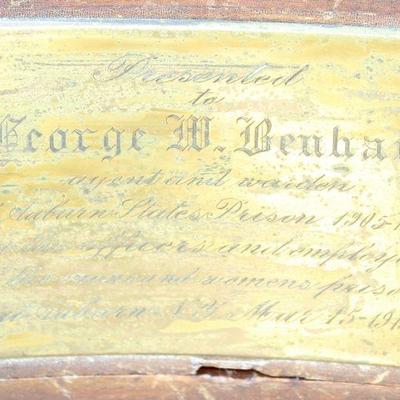 Presented
to
George W. Benha
agent and warden
Auburn States Prison 1905-1
the officers and employe
the mens and womens priso
Auburn N.Y. Mar 15-19